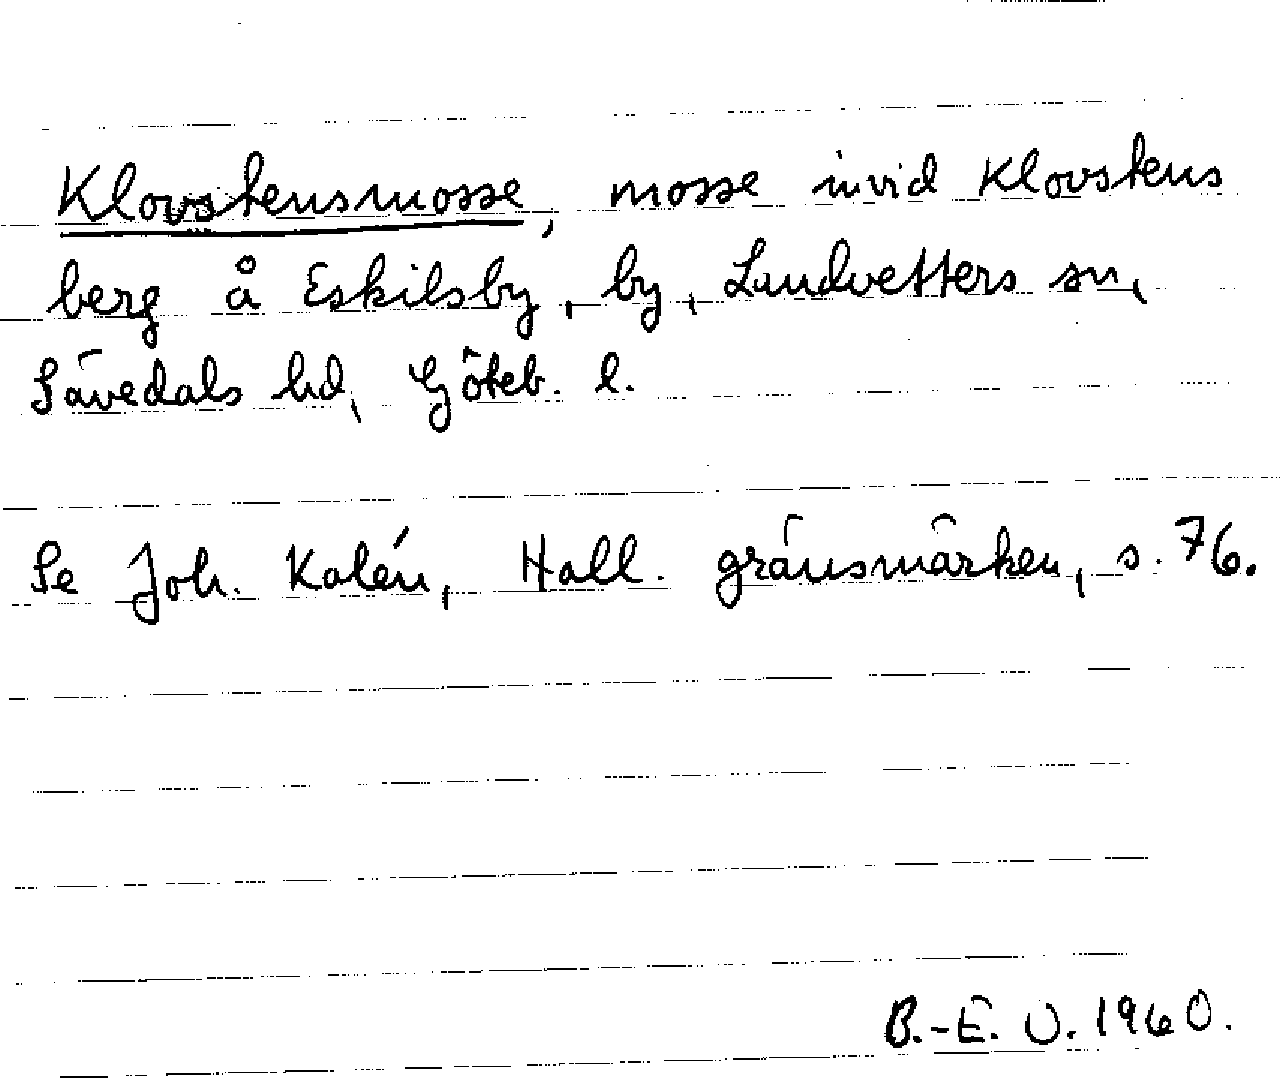 Klovstensmosse, mosse invid Klovstens
berg å Eskilsby, by, Landvetters sn,
Sävedals hd, Göteb. l.
Se Joh. Kalén, Hall. gränsmärken, s. 76.
B.-E. O. 1960.